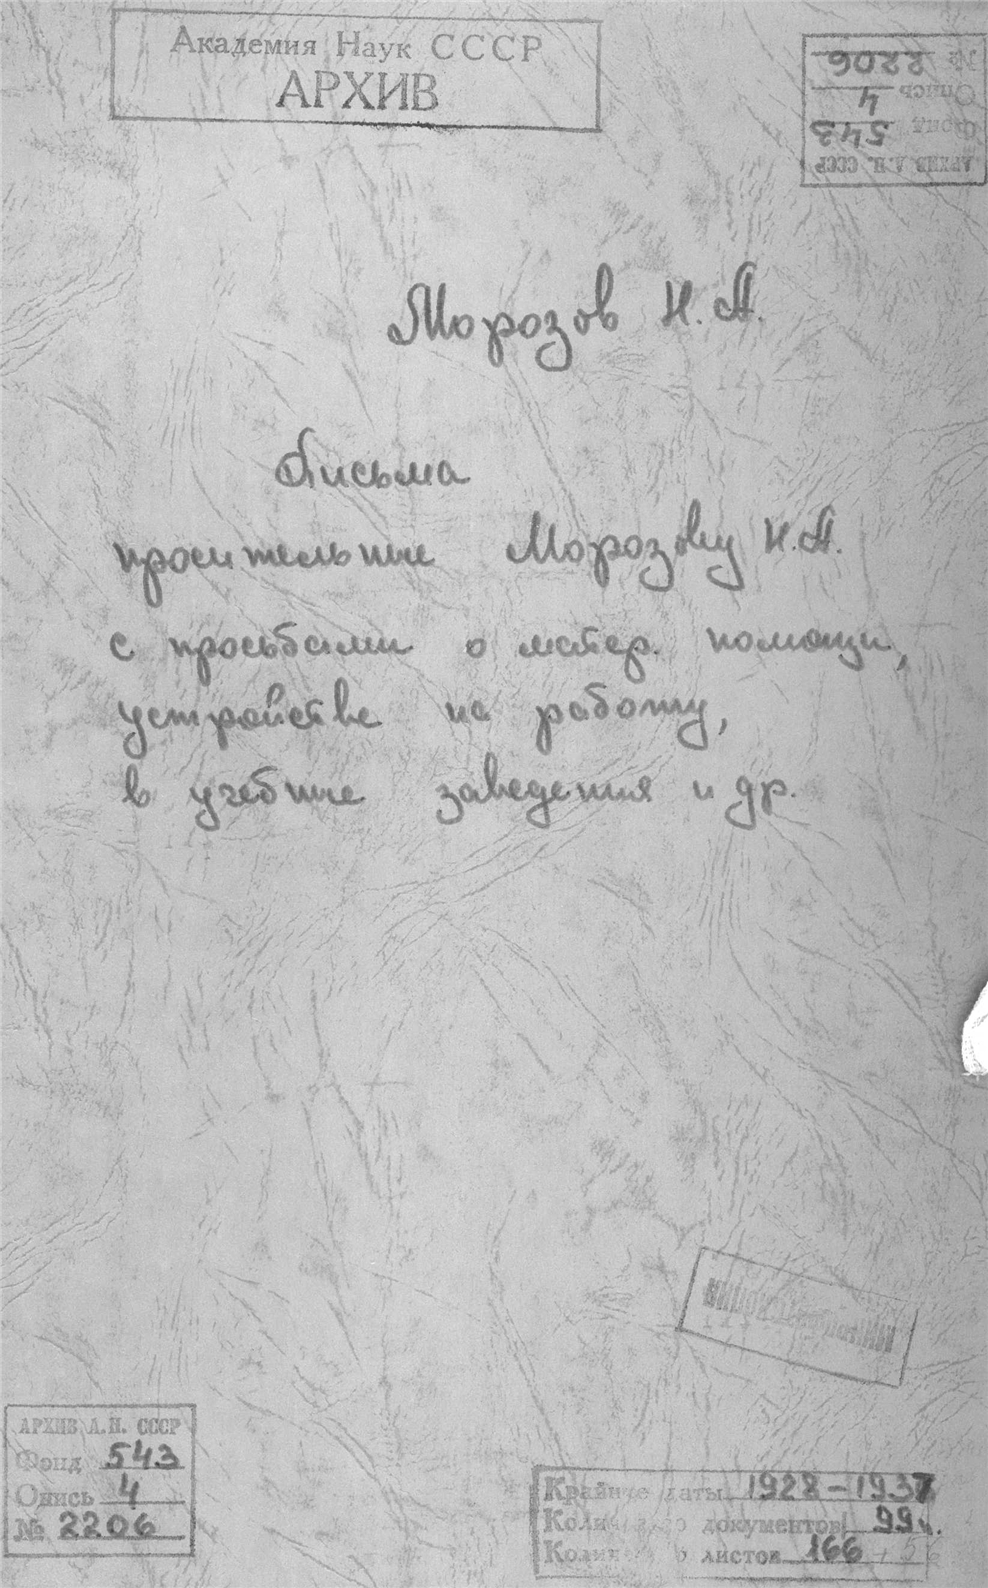 Академия Наук СССР
АРХИВ
№ 2206
Опись 4
Фонд 543
АРХИВ А.Н. СССР
Морозов Н.А.
Письма
просительные Морозову Н.А.
с просьбами о матер. помощи,
устройстве на работу,
в учебные заведения и др.
АРХИВ А.Н. СССР
Фонд 543
Опись 4
№ 2206
Крайние даты 1928-1937
Количество документов 99
Количество листов 166